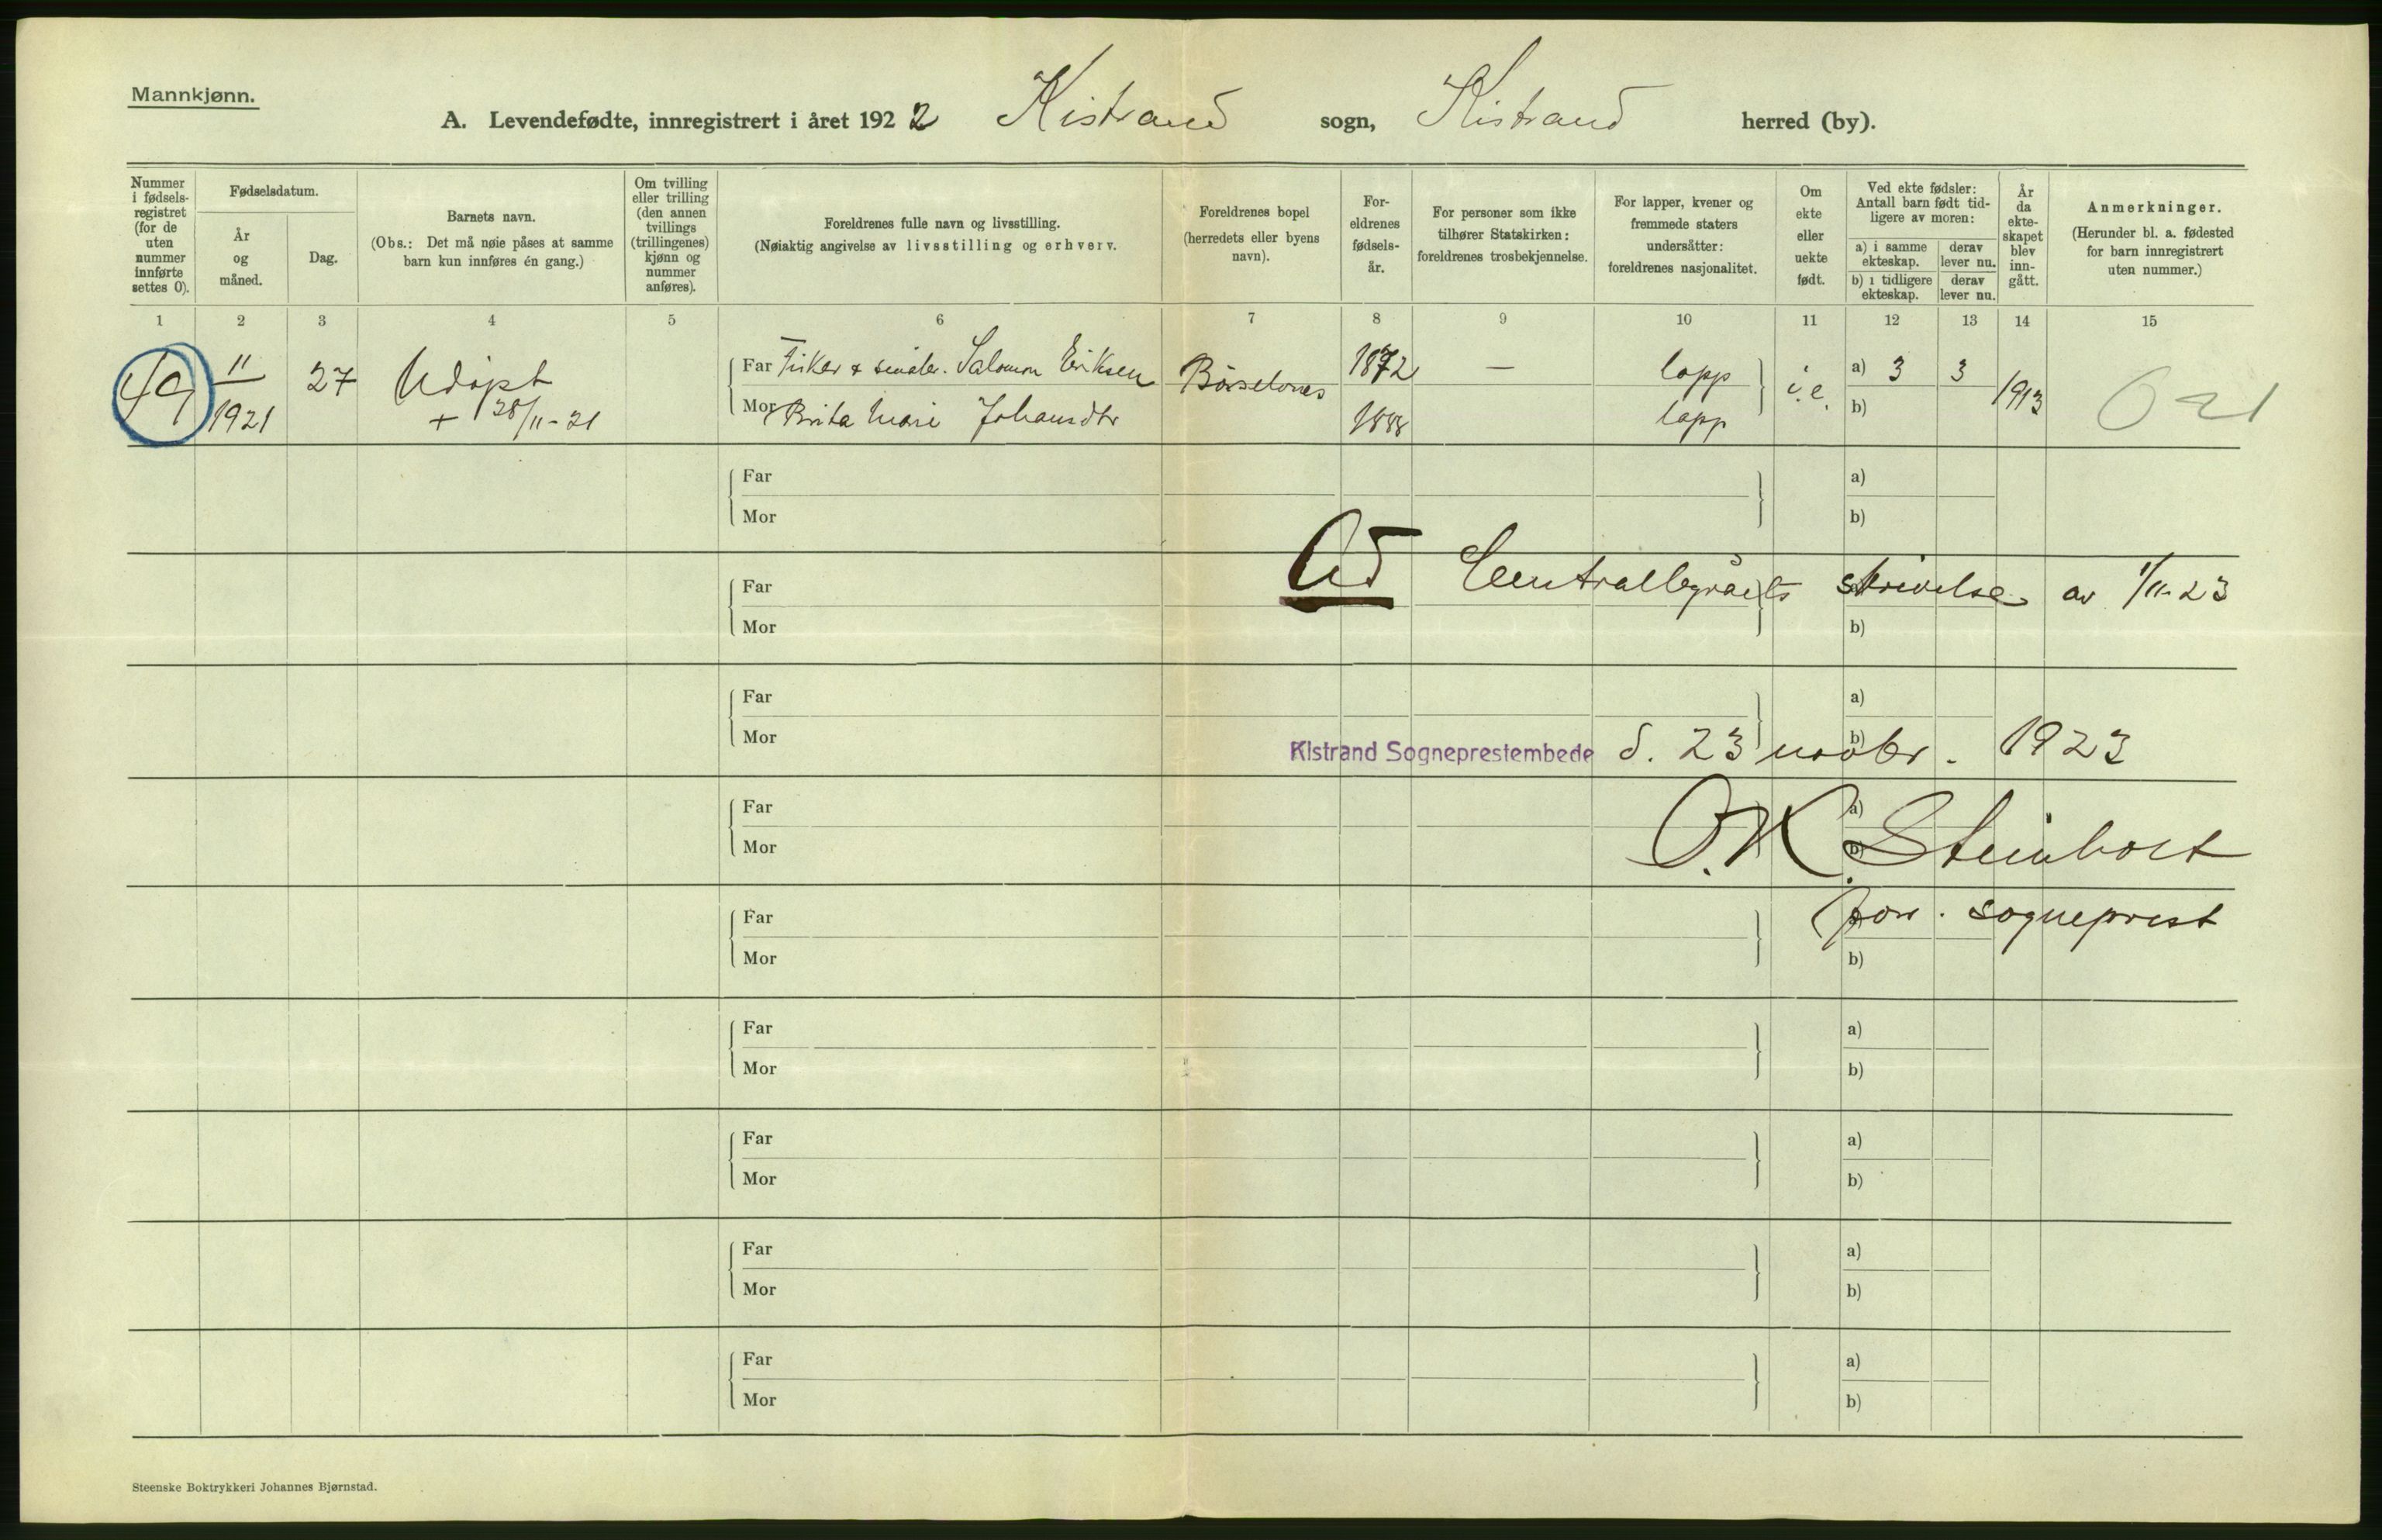 Mannkjønn.
A. Levendefødte, innregistrert i året 1922 Kistrand sogn, Kistrand herred (by).
Nummer i fødsels-registret (for de uten nummer innførte settes 0).
Fødselsdatum.
År og måned.
Dag.
Barnets navn.
(Obs.: Det må nøie påses at samme barn kun innføres én gang.)
Om tvilling eller trilling (den annen tvillings (trillingenes) kjønn og nummer anføres).
Foreldrenes fulle navn og livsstilling.
(Nøiaktig angivelse av livsstilling og erhverv.
Foreldrenes bopel (herredets eller byens navn).
For-eldrenes fødsels-år.
For personer som ikke tilhører Statskirken: foreldrenes trosbekjennelse.
For lapper, kvener og fremmede staters undersåtter: foreldrenes nasjonalitet.
Om ekte eller uekte født.
Ved ekte fødsler: Antall barn født tid-ligere av moren:
a) i samme ekteskap.
derav lever nu.
b) i tidligere ekteskap.
derav lever nu.
År da ekte-skapet blev inn-gått.
Anmerkninger.
(Herunder bl. a. fødested for barn innregistrert uten nummer.)
1 2 3 4 5 6 7 8 9 10 11 12 13 14 15
49 11 27 Udøpt Far Fisker & Salomon Eriksen 1872 — lapp a) 3 3
1921 + 28/11-21 Mor Brita Mari Johansdtr 1888 lapp b) 1913
Far a)
Mor b)
Ad Centralbyråets skrivelse av 1/11-23
Far
Mor b)
Far a)
Mor b)
Kistrand Sogneprestembede d. 23 novbr. 1923
Far a)
Mor b)
O. K. Steinholt
Far
Mor b)
sogneprest
Far a)
Mor b)
Far a)
Mor b)
Far a)
Mor b)
Far a)
Mor b)
Steenske Boktrykkeri Johannes Bjørnstad.